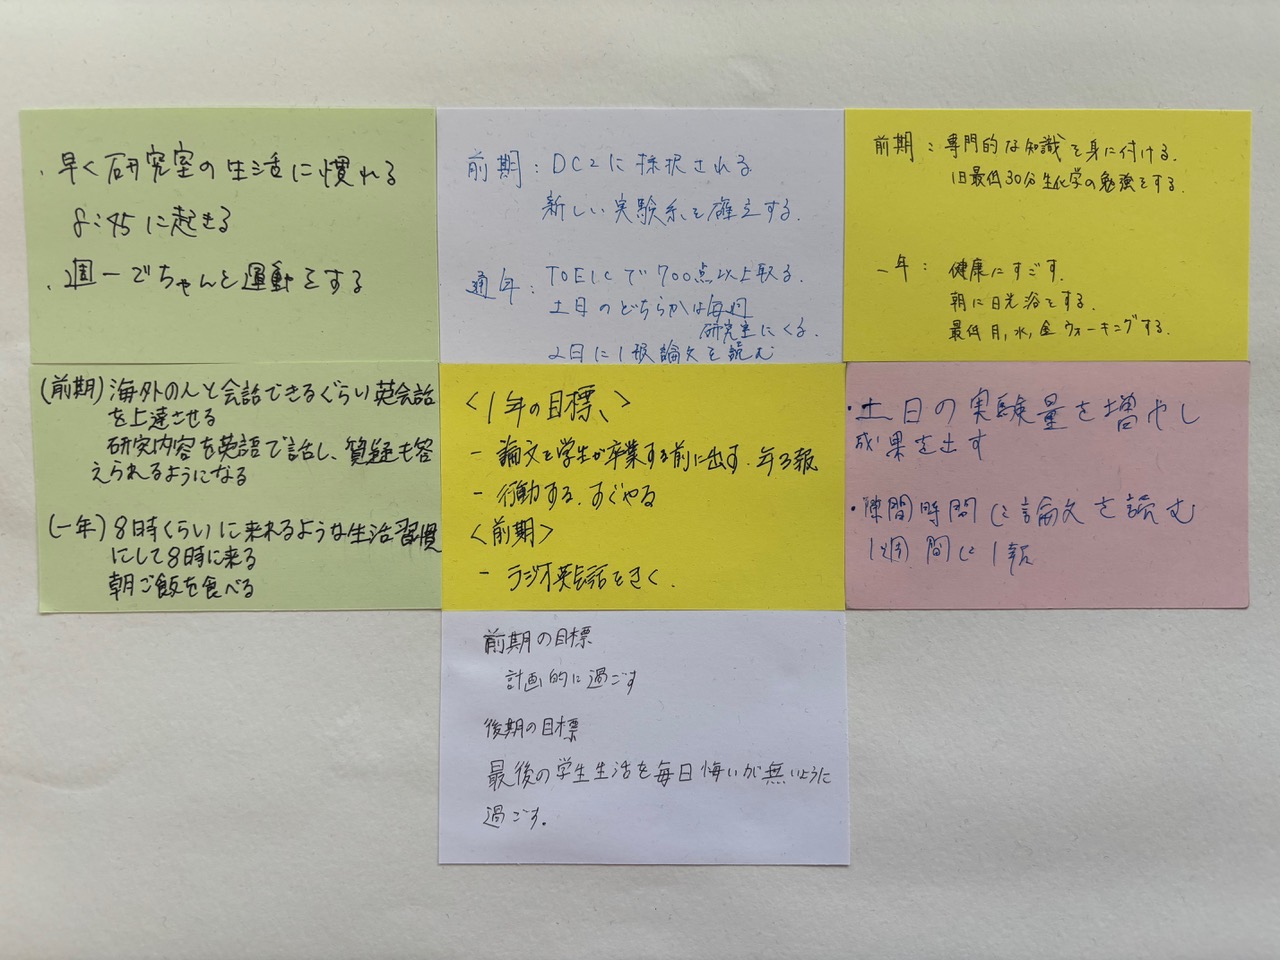 ・早く研究室の生活に慣れる
8:45に起きる
・週一でちゃんと運動をする
前期：DC2に採択される
新しい実験系を確立する.
通年：TOEICで700点以上取る.
土日のどちらかは毎週
研究室にくる.
2日に1報論文を読む
前期：専門的な知識を身に付ける.
1日最低30分生化学の勉強をする.
一年：健康にすごす.
朝に日光浴をする.
最低月,水,金ウォーキングする.
(前期)海外の人と会話できるぐらい英会話
を上達させる
研究内容を英語で話し、質疑も答
えられるようになる
(一年)8時くらいに来れるような生活習慣
にして8時に来る
朝ご飯を食べる
<1年の目標、>
- 論文を学生が卒業する前に出す. 年3報
- 行動する.すぐやる
<前期>
- ラジオ英会話をきく.
・土日の実験量を増やし
成果を出す
・隙間時間に論文を読む
1週間に1報
前期の目標
計画的に過ごす
後期の目標
最後の学生生活を毎日悔いが無いように
過ごす.